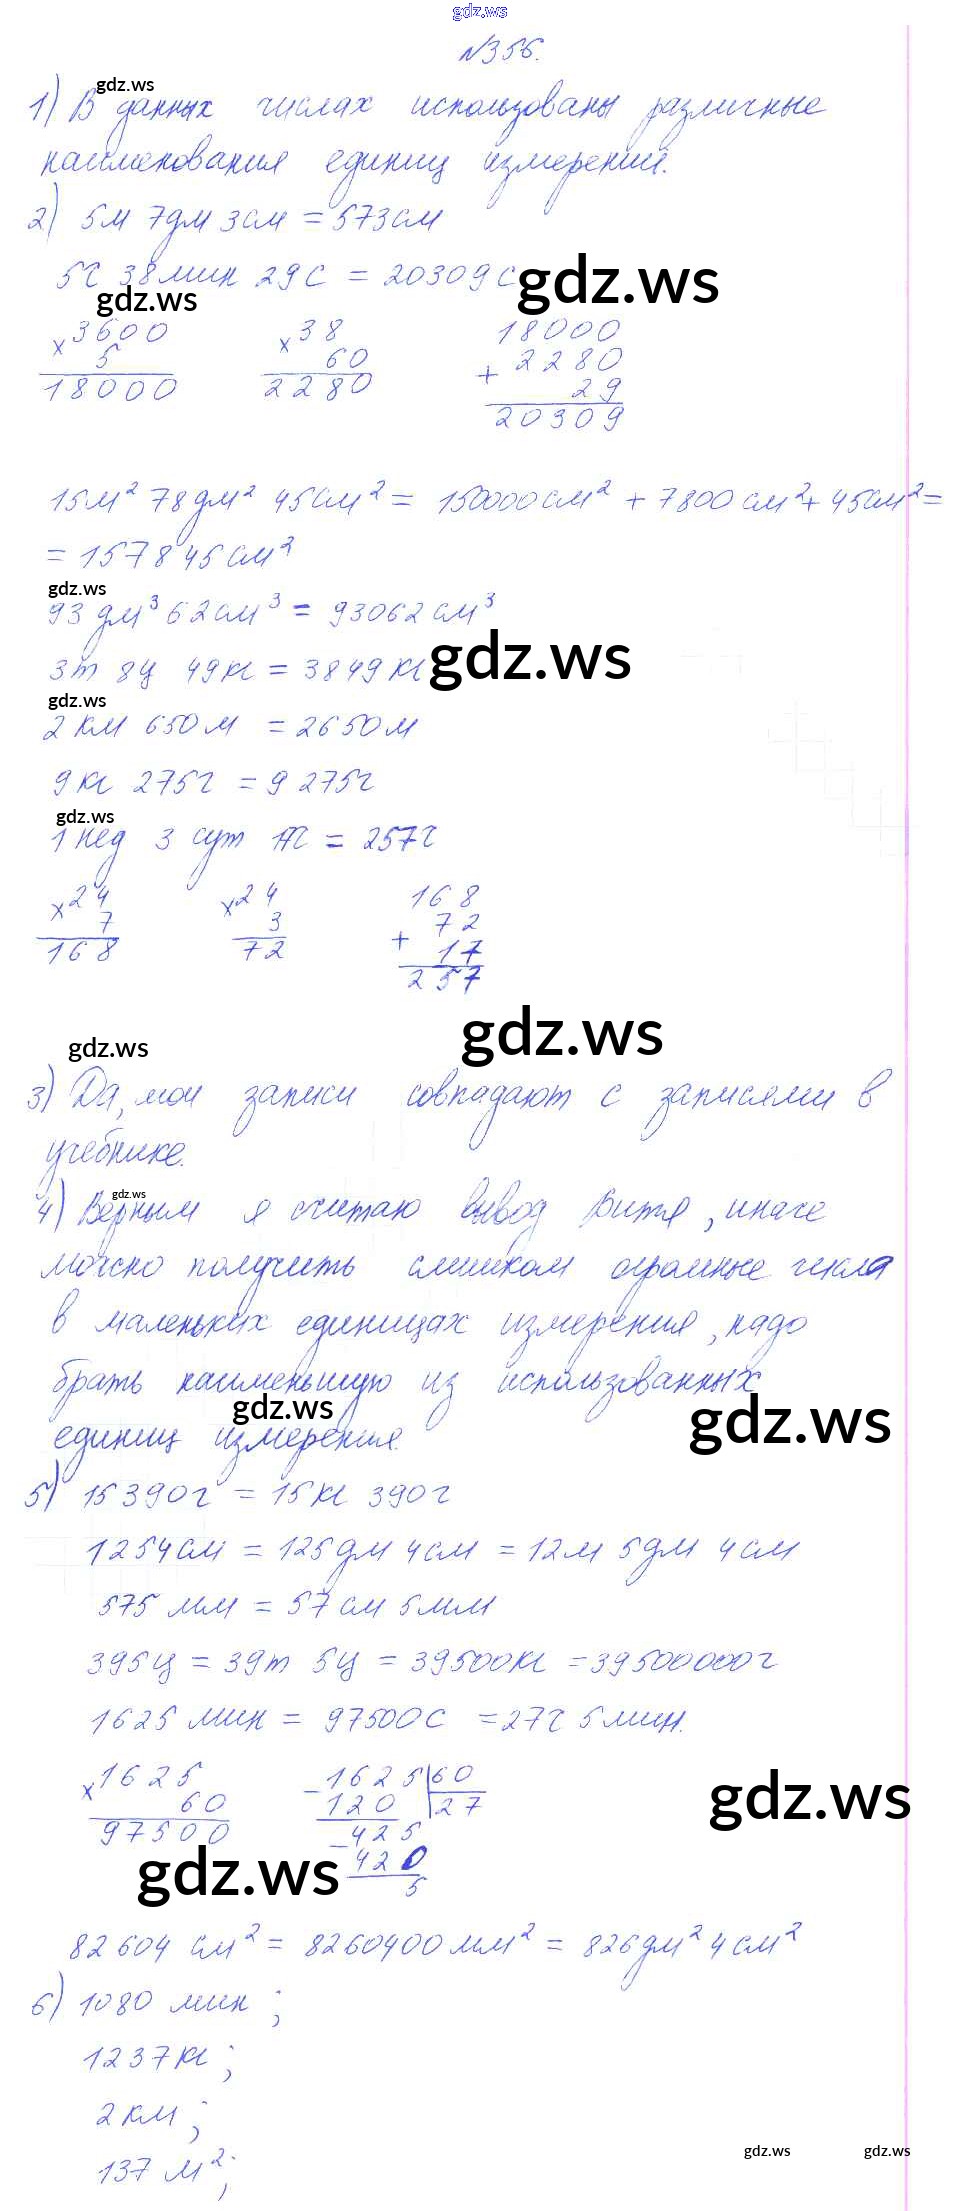 gdz.ws
№356.
gdz.ws
1) В данных числах использованы различные
наименования единиц измерений.
2) 5м 7дм 3см = 573см
5ч 38мин 29с = 20309с
gdz.ws
gdz.ws
×3600 ×38 18000
5 60 + 2280
18000 2280 29
20309
15м² 78дм² 45см² = 150000см² + 7800см² + 45см² =
= 157845см²
gdz.ws
93дм³ 62см³ = 93062см³
3т 8ц 49кг = 3849кг
gdz.ws
gdz.ws
2км 650м = 2650м
9кг 275г = 9275г
gdz.ws
1нед 3сут 17ч = 257ч
×24 ×24 168
7 3 72
168 72 + 17
257
gdz.ws
gdz.ws
3) Да, мои записи совпадают с записями в
учебнике.
gdz.ws
4) Верным я считаю вывод Витя, иначе
можно получить слишком огромные числа
в маленьких единицах измерения, надо
брать наименьшую из использованных
gdz.ws
gdz.ws
единиц измерения.
5) 15390г = 15кг 390г
1254см = 125дм 4см = 12м 5дм 4см
575мм = 57см 5мм
395ц = 39т 5ц = 39500кг = 39500000г
1625мин = 97500с = 27ч 5мин.
×1625 - 1625|60
60 120 |27
97500 -425
420
5
gdz.ws
gdz.ws
82604см² = 8260400мм² = 826дм² 4см²
6) 1080мин;
1237кг;
2км;
137м²;
gdz.ws gdz.ws